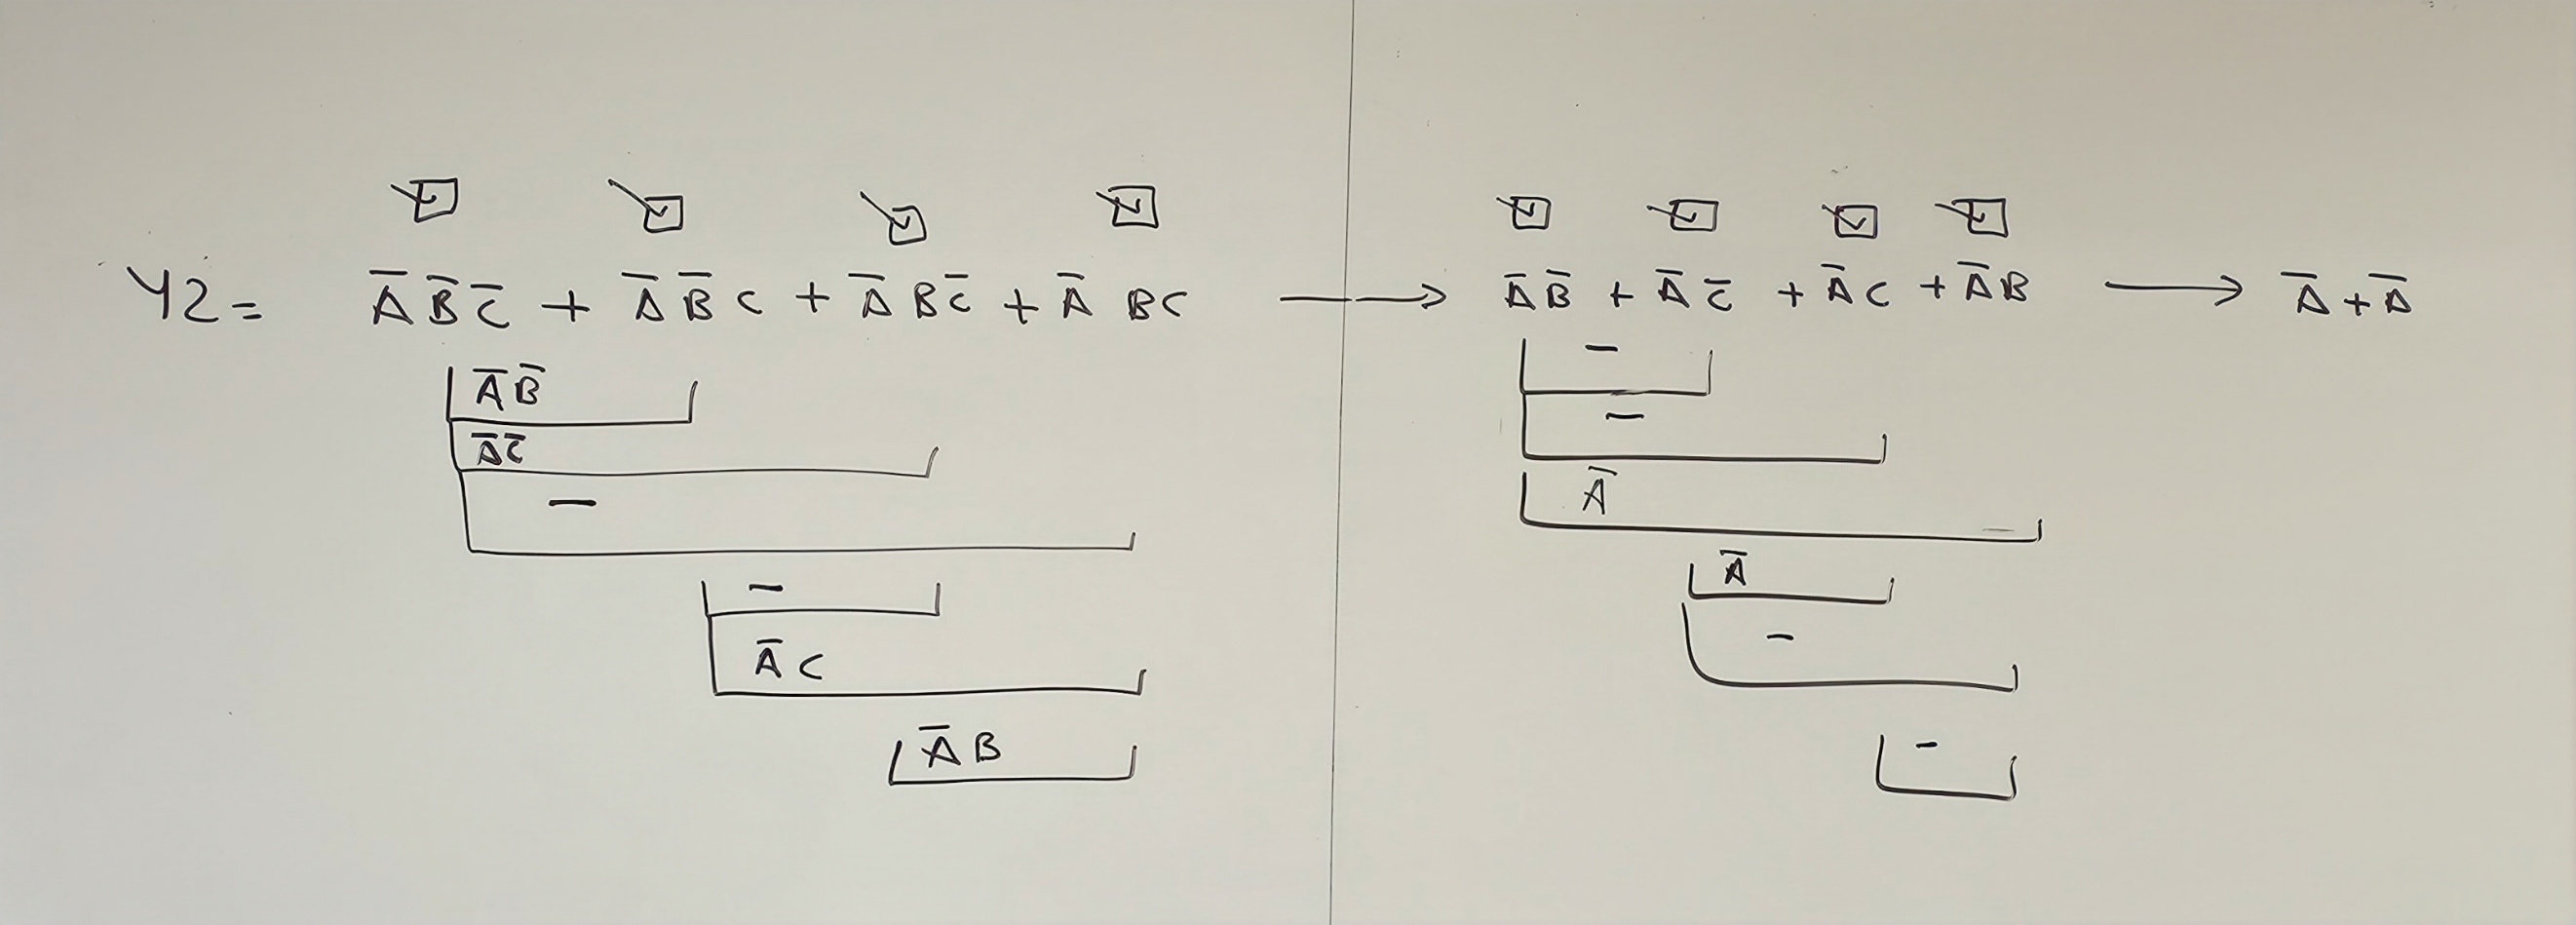 Y2= A̅ B̅ C̅ + A̅ B̅ C + A̅ B C̅ + A̅ B C → A̅ B̅ + A̅ C̅ + A̅ C + A̅ B → A̅ + A̅
A̅ B̅
A̅ C̅
—
—
A̅ C
A̅ B
—
—
A̅
A̅
—
—